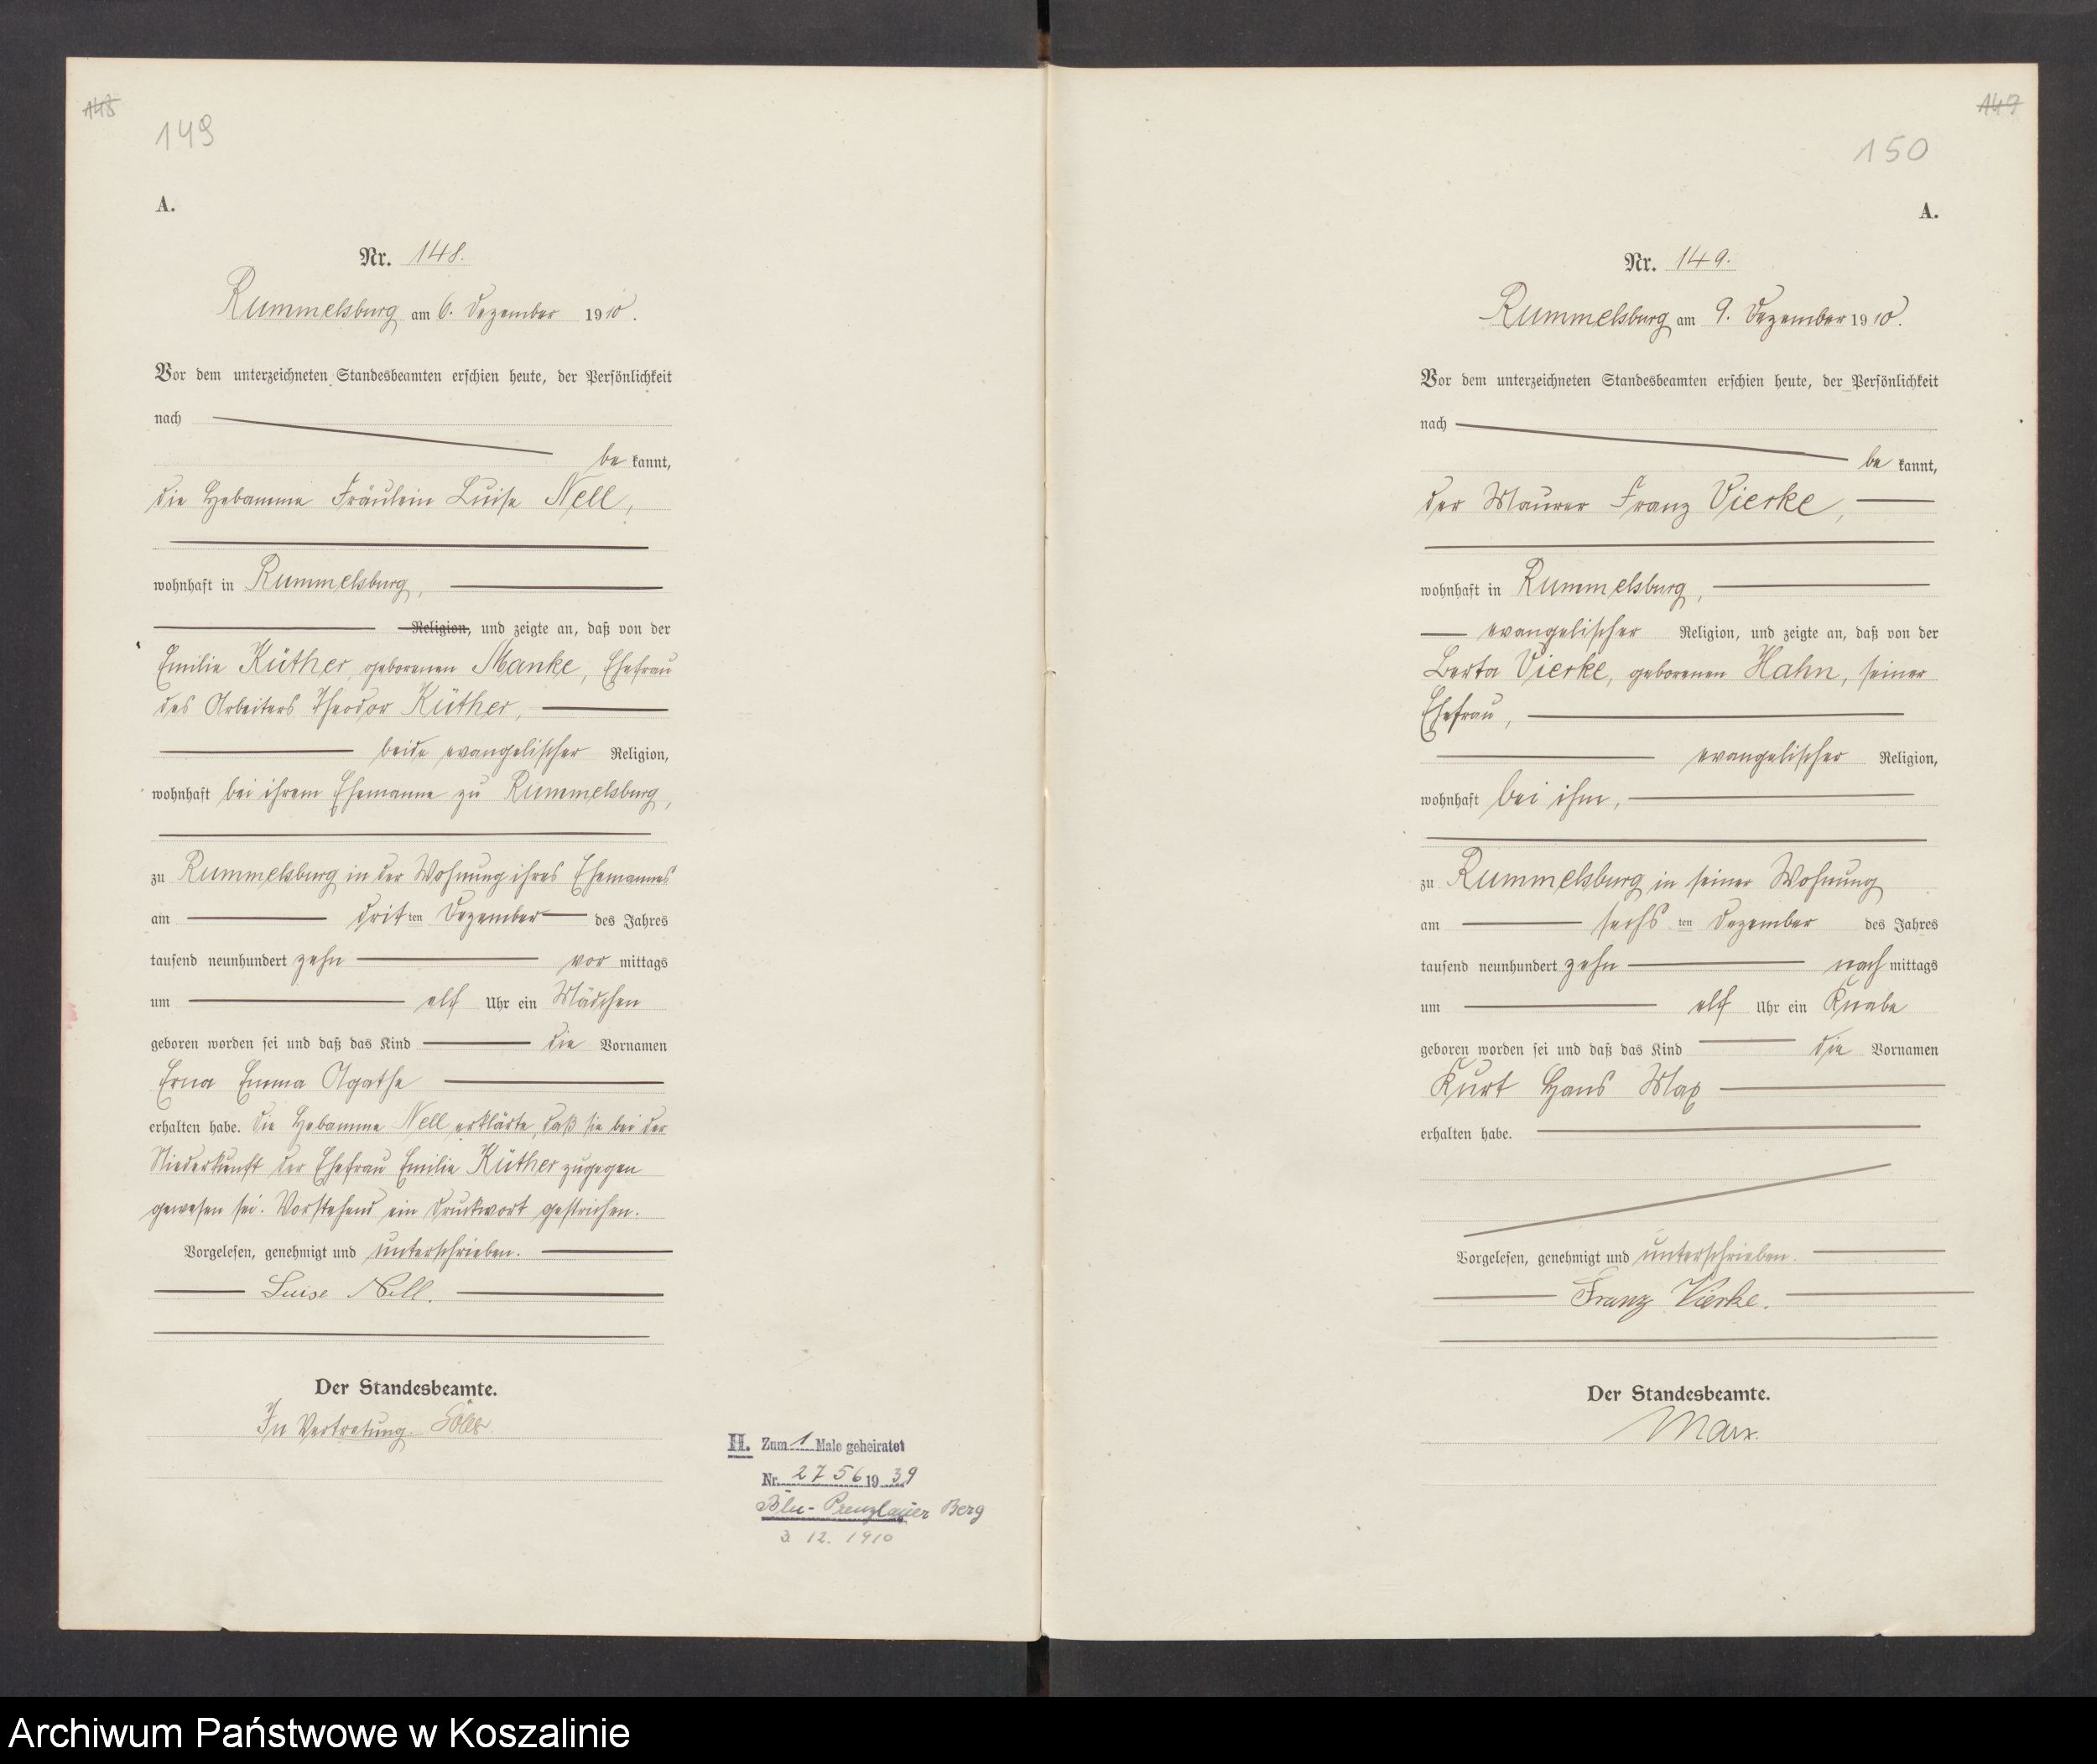 148
149
A.
Nr. 148.
Rummelsburg am 6. Dezember 1910.
Vor dem unterzeichneten Standesbeamten erschien heute, der Persönlichkeit
nach
be kannt,
die Hebamme Fräulein Luise Nell,
wohnhaft in Rummelsburg,
Religion, und zeigte an, daß von der
Emilie Küther, geborenen Manke, Ehefrau
des Arbeiters Theodor Küther,
beide evangelischer Religion,
wohnhaft bei ihrem Ehemanne zu Rummelsburg,
zu Rummelsburg in der Wohnung ihres Ehemannes
am dritten Dezember des Jahres
tausend neunhundert zehn vor mittags
um elf Uhr ein Mädchen
geboren worden sei und daß das Kind die Vornamen
Erna Emma Agathe
erhalten habe. Die Hebamme Nell erklärte, daß sie bei der
Niederkunft der Ehefrau Emilie Küther zugegen
gewesen sei. Vorstehend ein Druckwort gestrichen.
Vorgelesen, genehmigt und unterschrieben.
Luise Nell.
Der Standesbeamte.
In Vertretung.
H. Zum 1 Male geheiratet
Nr. 2756 1939
Bln-Prenzlauer Berg
3. 12. 1910
149
150
A.
Nr. 149.
Rummelsburg am 9. Dezember 1910.
Vor dem unterzeichneten Standesbeamten erschien heute, der Persönlichkeit
nach
be kannt,
der Maurer Franz Vierke,
wohnhaft in Rummelsburg,
evangelischer Religion, und zeigte an, daß von der
Berta Vierke, geborenen Hahn, seiner
Ehefrau,
evangelischer Religion,
wohnhaft bei ihm,
zu Rummelsburg in seiner Wohnung
am sechs ten Dezember des Jahres
tausend neunhundert zehn nach mittags
um elf Uhr ein Knabe
geboren worden sei und daß das Kind die Vornamen
Kurt Hans Max
erhalten habe.
Vorgelesen, genehmigt und unterschrieben.
Franz Vierke.
Der Standesbeamte.
Marx.
Archiwum Państwowe w Koszalinie